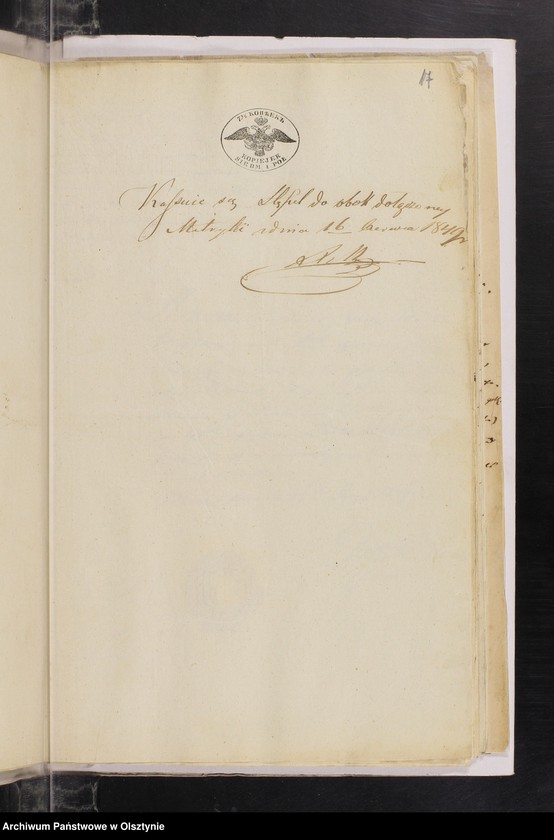 17
7½ КОПѢЕКЪ
KOPIEJEK
SIEDM I PÓŁ
Kassuie się Stępel do obok dołączonej
Metryki dnia 16 Czerwca 1849 r
Archiwum Państwowe w Olsztynie